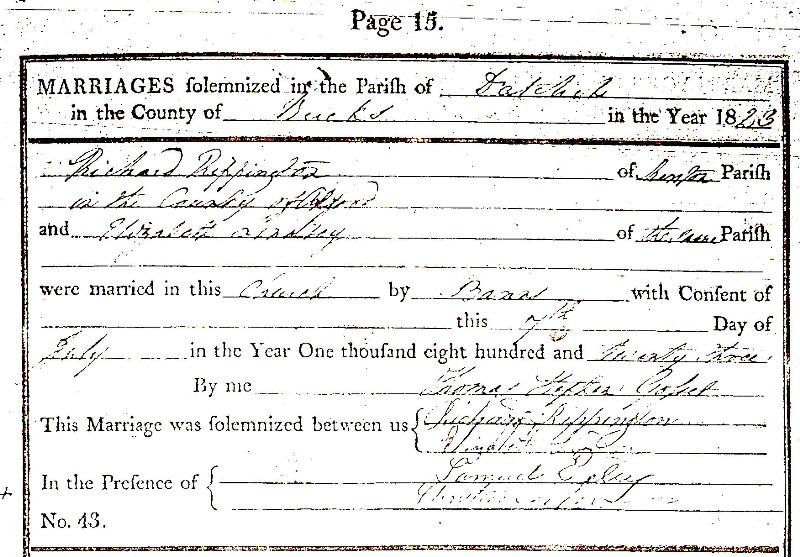 Page 15.
MARRIAGES solemnized in the Parish of
in the County of Bucks in the Year 1823
Richard Rippington of Parish
in the County of Oxford
and Elizabeth Lindsey of the same Parish
were married in this Church by Banns with Consent of
this 7th Day of
July in the Year One thousand eight hundred and Twenty three
By me Thomas
This Marriage was solemnized between us { Richard Rippington
Elizabeth
In the Presence of { Samuel
No. 43.